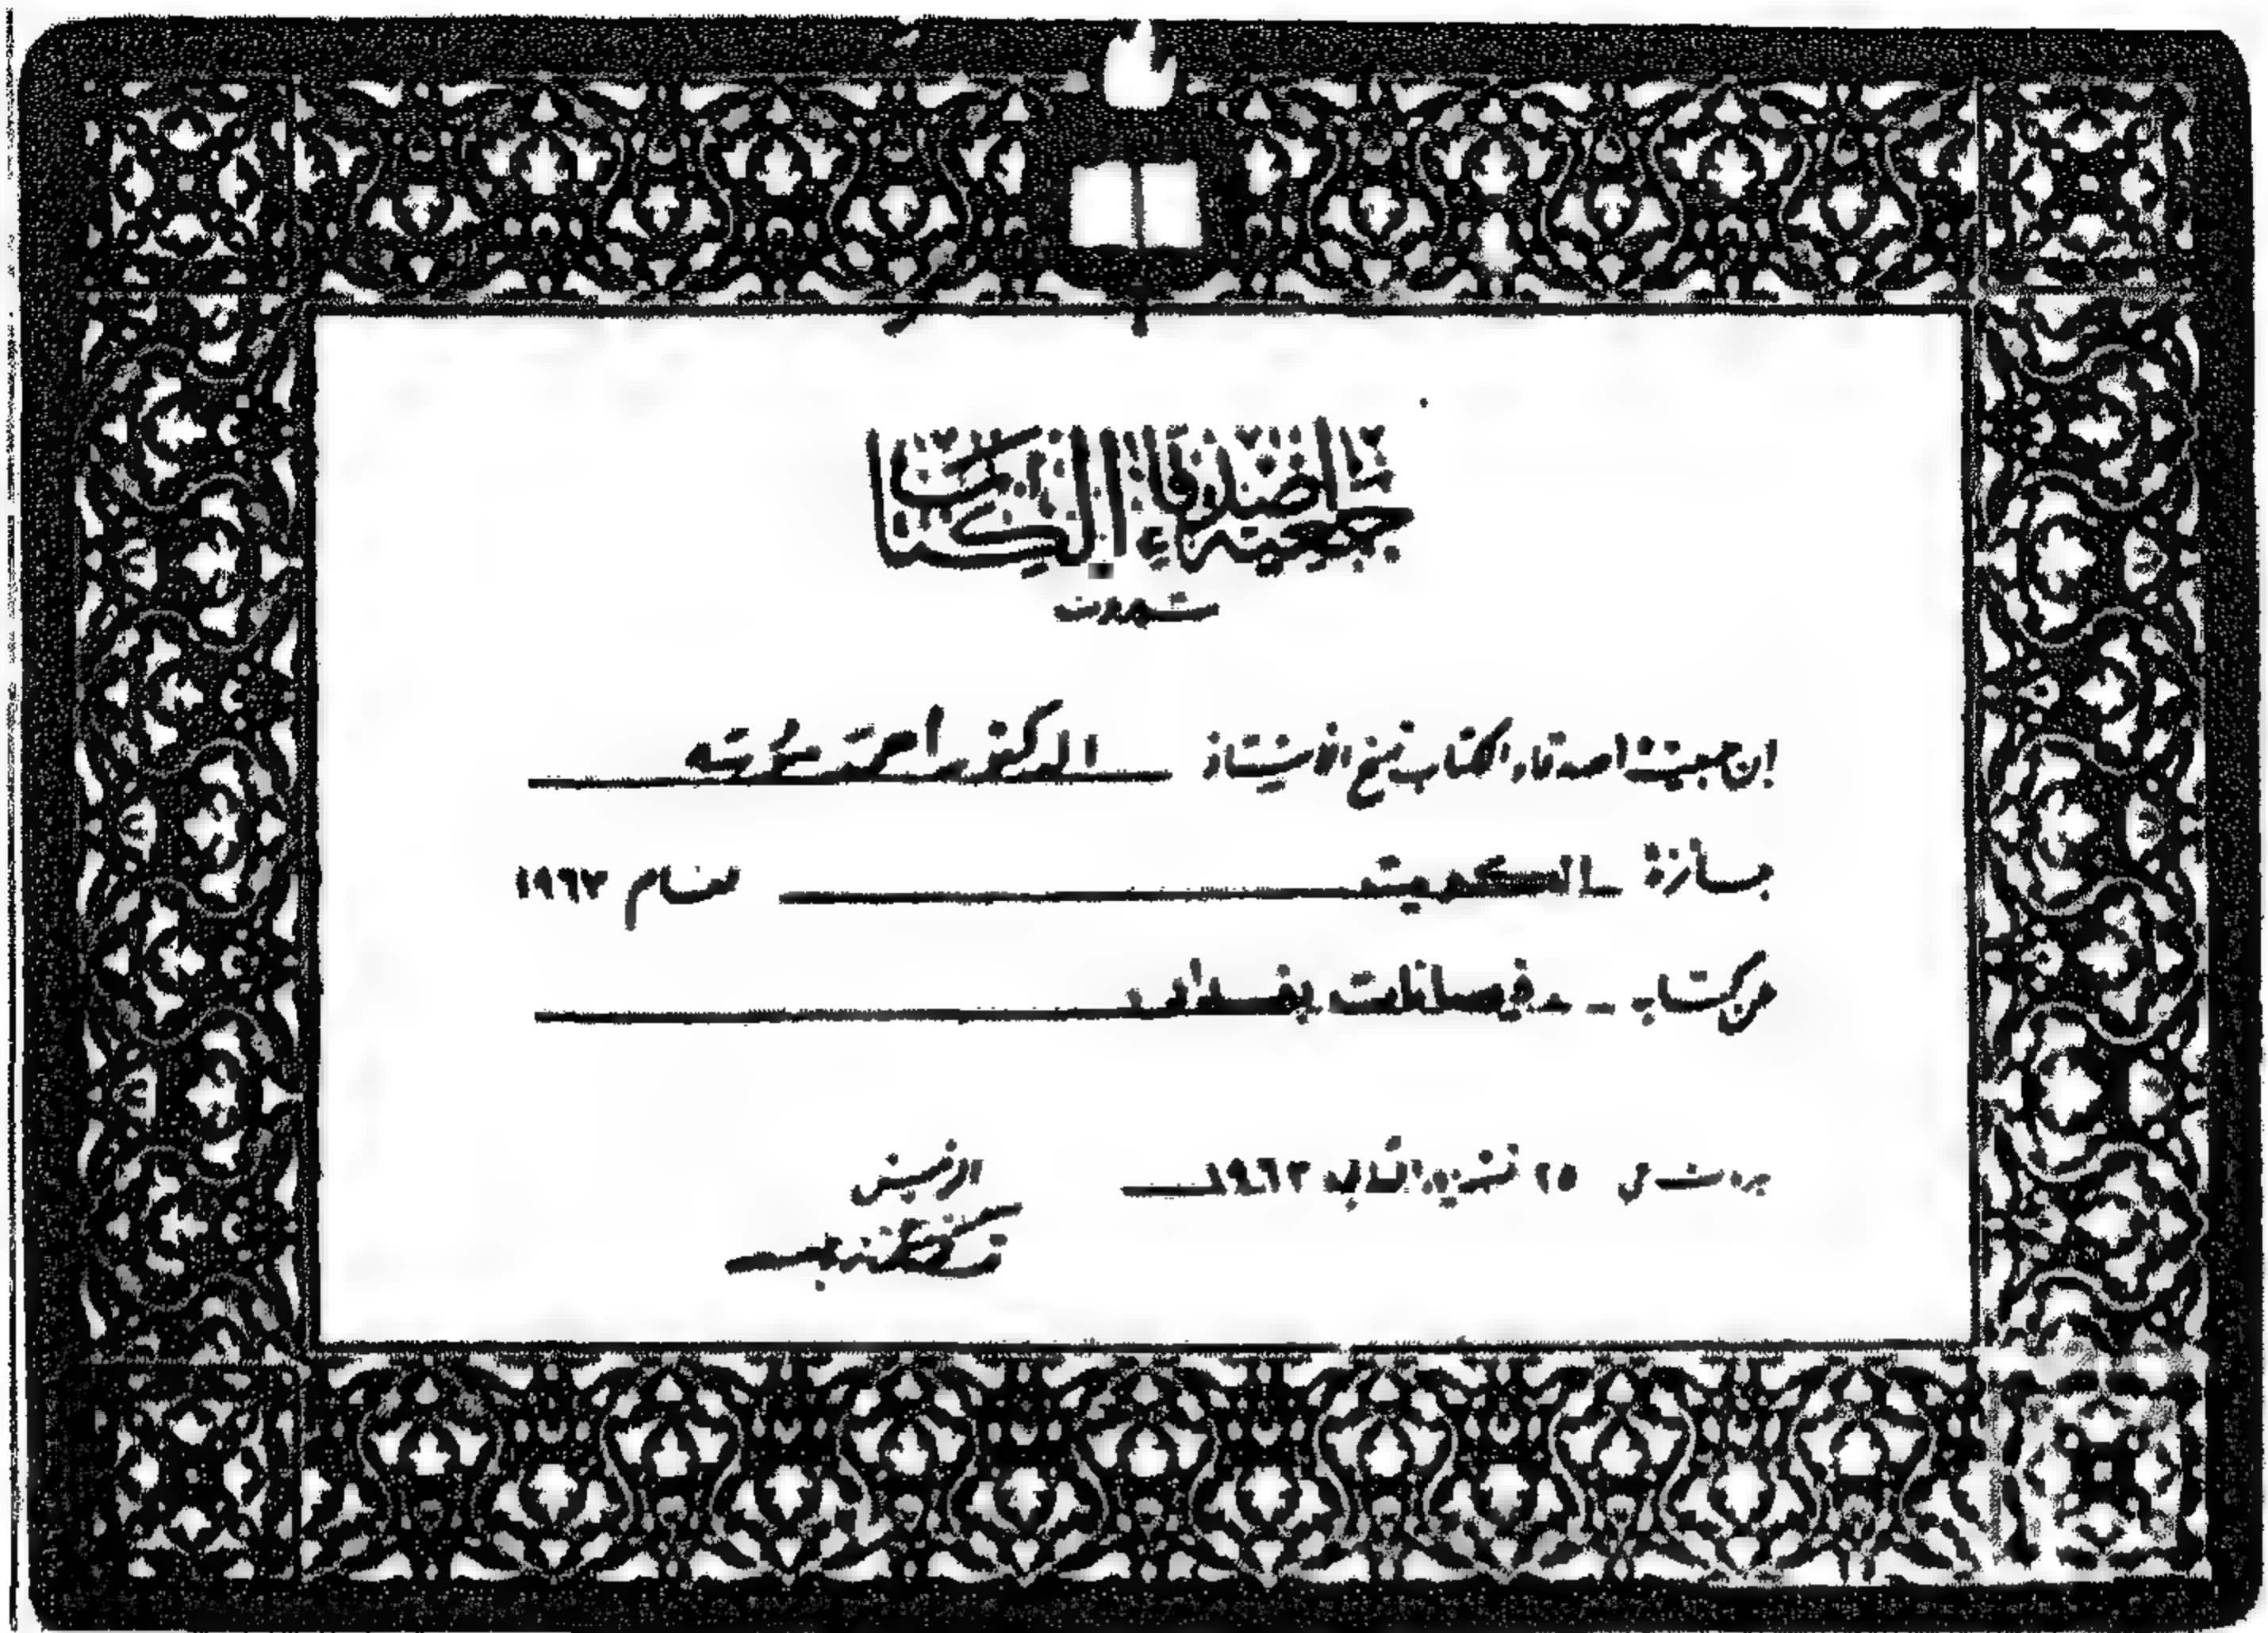 جمعية أصدقاء الكتاب
إن جمعية اصدقاء الكتاب تمنح الاستاذ الدكتور احمد سوسه
جائزة الكويت لعام ١٩٦٣
عن كتاب فيضانات بغداد
بيروت في ٢٥ تشرين الثاني ١٩٦٣
الرئيس